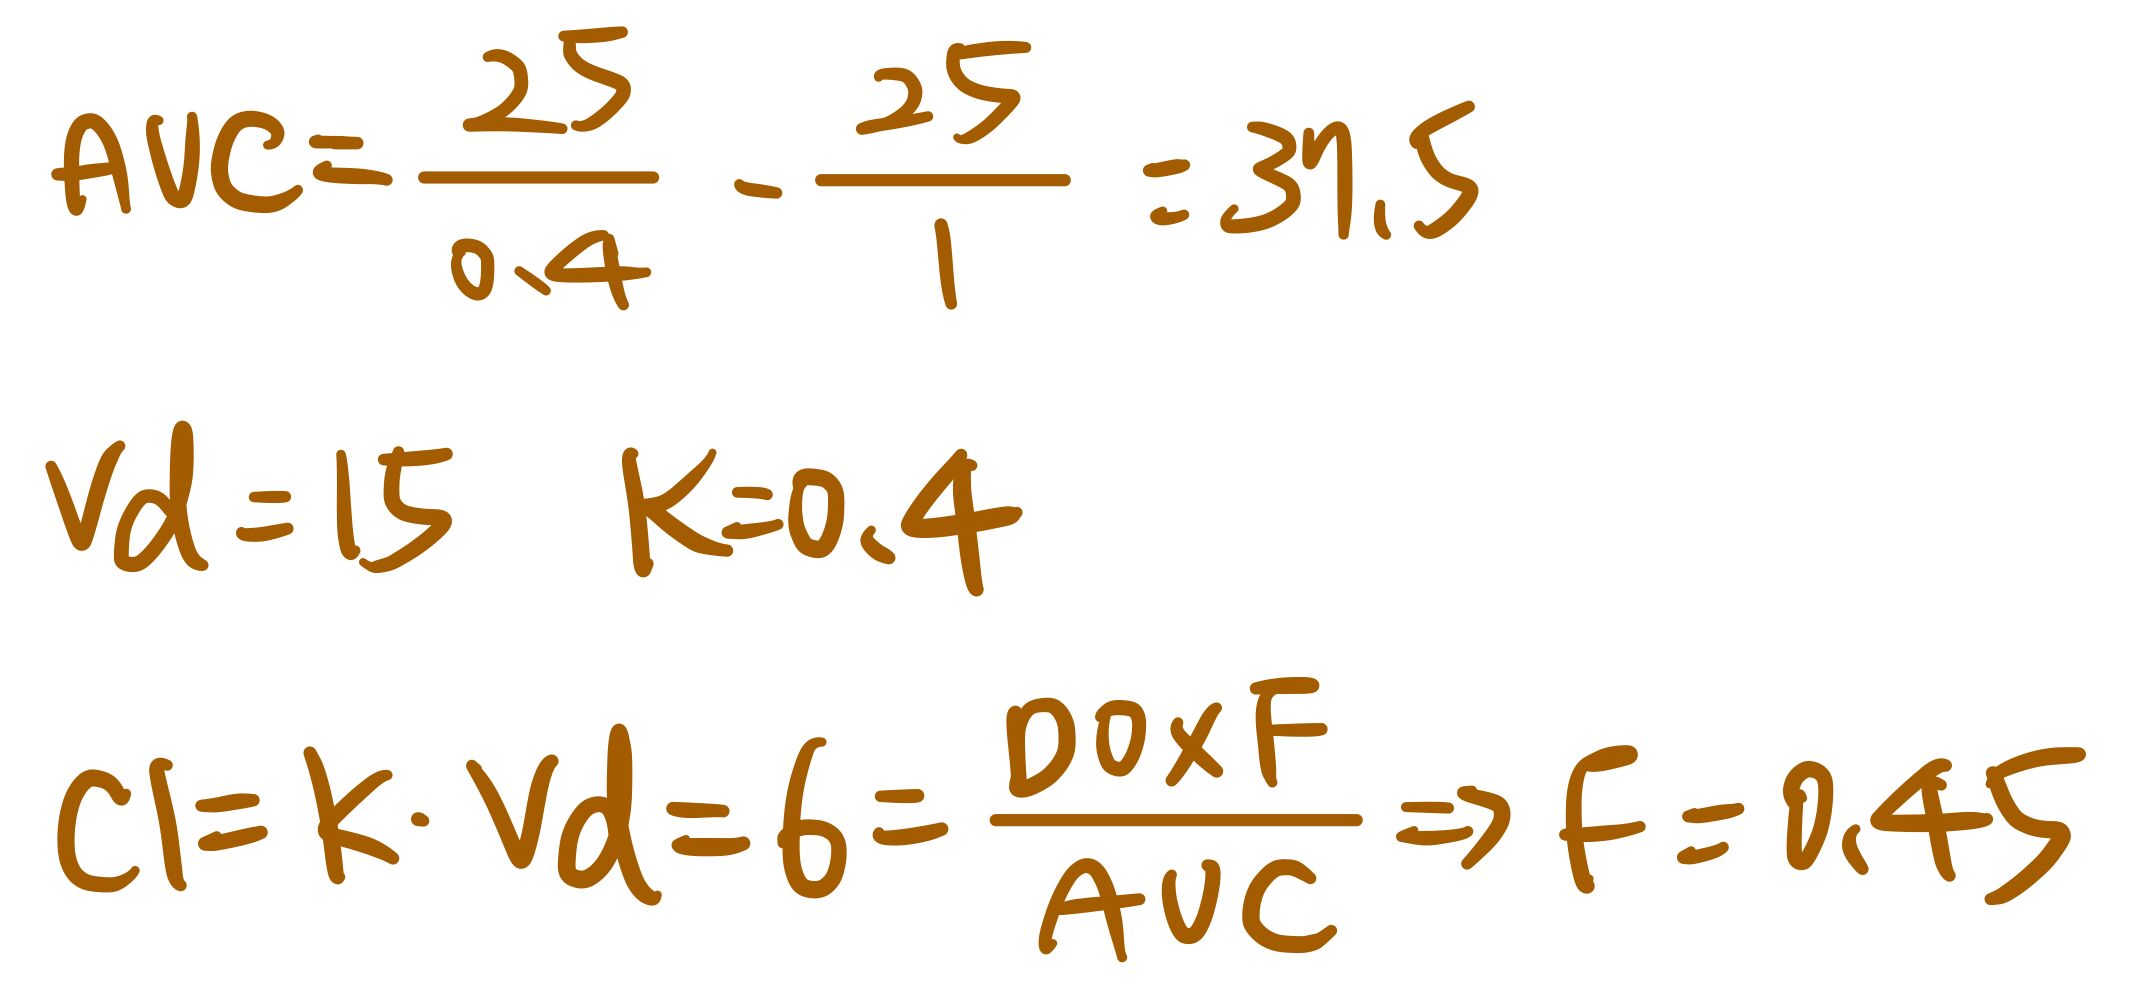 AUC = 25/0.4 - 25/1 = 37.5
Vd = 15 K = 0.4
Cl = K · Vd = 6 = D0xF/AUC ⇒ F = 0.45